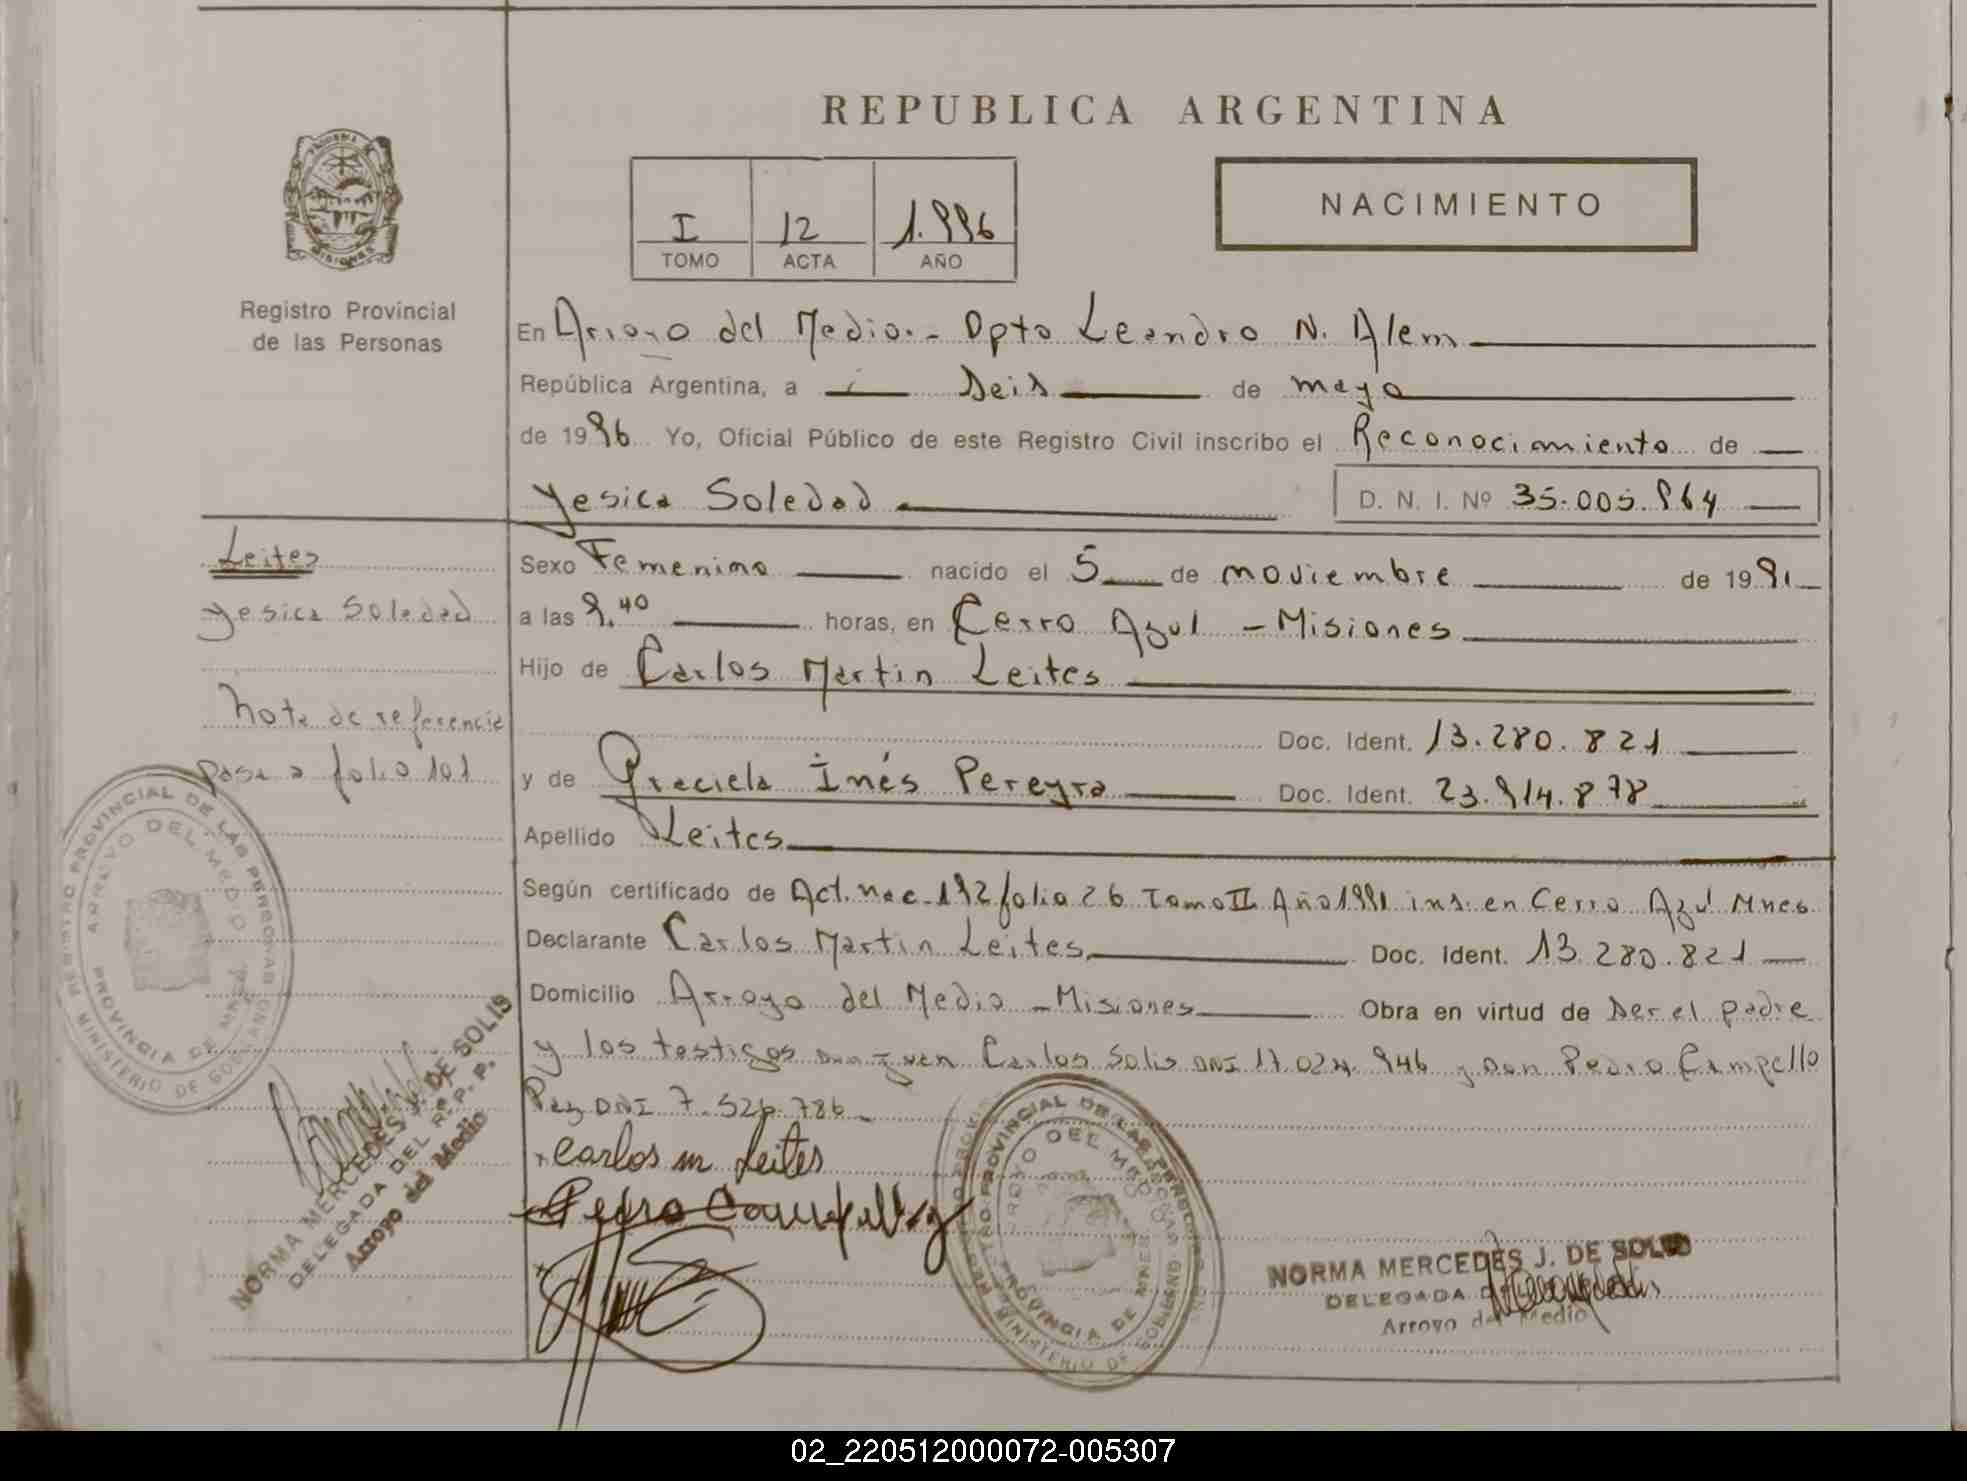 REPUBLICA ARGENTINA
NACIMIENTO
I 12 1.996
TOMO ACTA AÑO
Registro Provincial
de las Personas
En Arroyo del Medio.- Dpto Leandro N. Alem
República Argentina, a seis de mayo
de 1996 Yo, Oficial Público de este Registro Civil inscribo el Reconocimiento de
Yesica Soledad D. N. I. Nº 35.005.964
Leites
Yesica Soledad
Nota de referencia
pasa a folio 101
Sexo Femenino nacido el 5 de noviembre de 1991
a las 9.40 horas, en Cerro Azul - Misiones
Hijo de Carlos Martin Leites
Doc. Ident. 13.280.821
y de Graciela Inés Pereyra Doc. Ident. 23.914.878
Apellido Leites
Según certificado de Act. nac. 192 folio 26 Tomo II Año 1991 ins. en Cerro Azul Mnes
Declarante Carlos Martin Leites Doc. Ident. 13.280.821
Domicilio Arroyo del Medio - Misiones Obra en virtud de ser el padre
y los testigos Don Juan Carlos Solis DNI 17.024.946 y Don Pedro Campello
Paz DNI 7.526.786
Carlos M Leites
Pedro Campello
REGISTRO PROVINCIAL DE LAS PERSONAS
ARROYO DEL MEDIO
PROVINCIA DE MNES
MINISTERIO DE GOBIERNO
NORMA MERCEDES J. DE SOLIS
DELEGADA DEL R. P. P.
Arroyo del Medio
REGISTRO PROVINCIAL DE LAS PERSONAS
ARROYO DEL MEDIO
PROVINCIA DE MNES
MINISTERIO DE GOBIERNO
NORMA MERCEDES J. DE SOLIS
DELEGADA
Arroyo del Medio
02_220512000072-005307